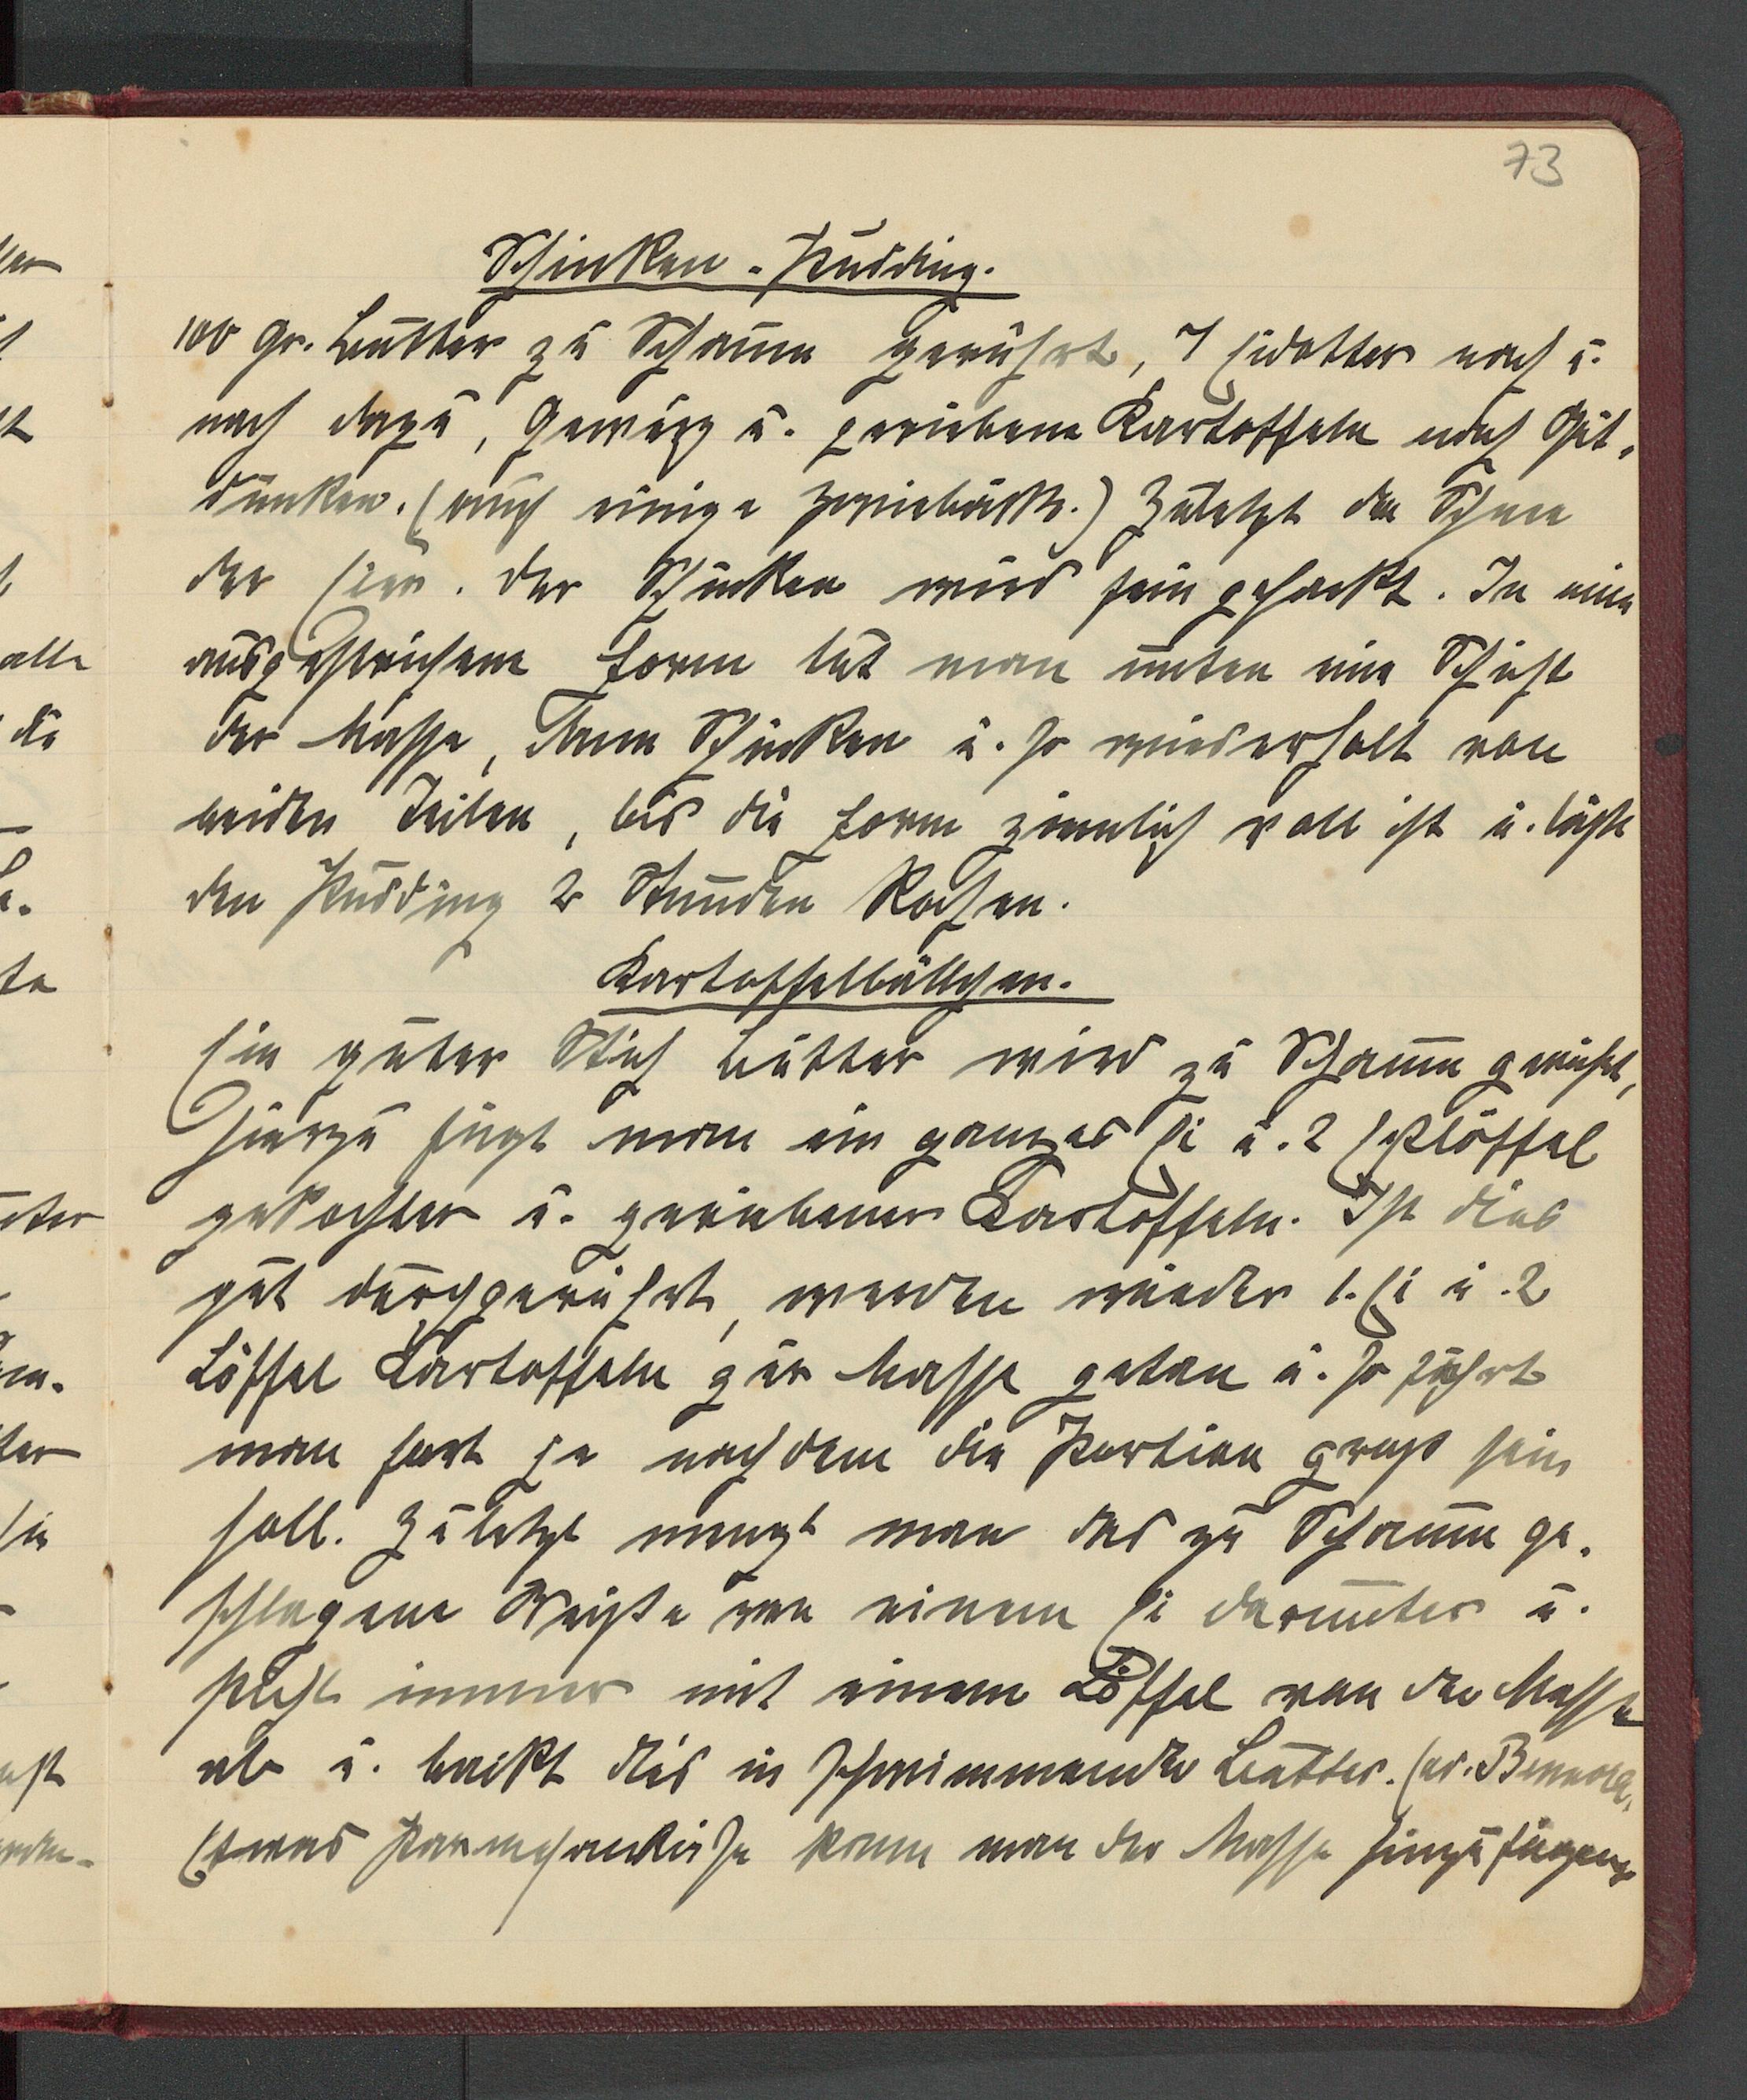 73
Schinken-Pudding.
100 gr. Butter zu Schaum gerührt, 7 Eidotter nach u.
nach dazu, Gewürz u. geriebene Kartoffeln nach Gut-
dünken. (auch einige Zwiebäcke.) Zuletzt den Schnee
der Eier. Der Schinken wird fein gehackt. In eine
ausgestrichene Form tut man unten eine Schicht
der Masse, dann Schinken u. so wiederholt von
beiden Teilen, bis die Form ziemlich voll ist u. läßt
den Pudding 2 Stunden kochen.
Kartoffelbällchen.
Ein guter Stich Butter wird zu Schaum gerührt,
hierzu fügt man ein ganzes Ei u. 2 Eßlöffel
gekochter u. geriebener Kartoffeln. Ist dies
gut durchgerührt, werden wieder 1. Ei u. 2
Löffel Kartoffeln zur Masse getan u. so fährt
man fort je nachdem die Portion groß sein
soll. Zuletzt mengt man das zu Schaum ge-
schlagene Weiße von einem Ei darunter u.
sticht immer mit einem Löffel von der Masse
ab u. backt dies in schwimmender Butter. (od.
Etwas Parmesankäse kann man der Masse hinzufügen.